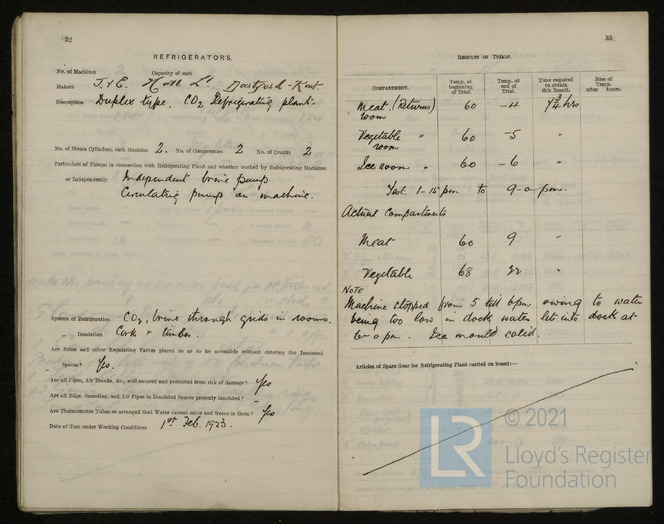 32
REFRIGERATORS.
No. of Machines
Capacity of each
Makers J. & E. Hall Ld. Dartford - Kent.
Description Duplex type, CO2 Refrigerating plant.
No. of Steam Cylinders, each Machine 2. No. of Compressors 2 No. of Cranks 2
Particulars of Pumps in connection with Refrigerating Plant and whether worked by Refrigerating Machines
or Independently Independent brine pump
Circulating pump on machine.
System of Refrigeration CO2, brine through grids in rooms.
„ Insulation Cork & timber.
Are Brine and other Regulating Valves placed so as to be accessible without entering the Insulated
Spaces? Yes.
Are all Pipes, Air Trunks, &c., well secured and protected from risk of damage? Yes
Are all Bilge, Sounding, and Air Pipes in Insulated Spaces properly insulated? -
Are Thermometer Tubes so arranged that Water cannot enter and freeze in them? Yes
Date of Test under Working Conditions 1st Feb. 1923.
33
RESULTS OF TRIALS.
COMPARTMENT.
Temp. at beginning of Trial.
Temp. at end of Trial.
Time required to obtain this Result.
Rise of Temp. after hours.
Meat (Returns) room 60 -4 7¾ hrs
Vegetable " room 60 -5 "
Ice room " 60 -6 "
Test. 1-15 pm to 9-0 pm.
Actual Compartments
Meat 60 9 "
Vegetable 68 22 "
NOTE
Machine stopped from 5 till 6 pm owing to water
being too low in dock water let into dock at
6-0 pm. Ice mould solid.
Articles of Spare Gear for Refrigerating Plant carried on board:—
© 2021
LR
Lloyd's Register
Foundation